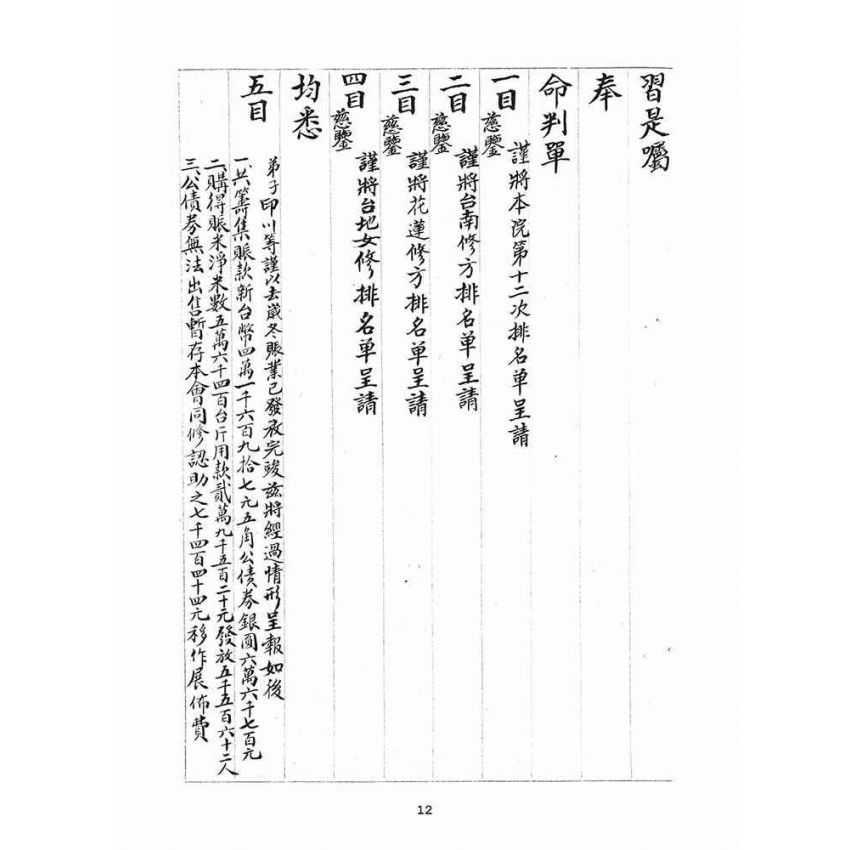 習是囑
奉
命判單
一目
謹將本院第十二次排名单呈請
慈鑒
二目
謹將台南修方排名单呈請
慈鑒
三目
謹將花蓮修方排名单呈請
慈鑒
四目
謹將台地女修排名单呈請
慈鑒
均悉
五目
弟子印川等謹以去歲冬賑業已發放完竣兹將經過情形呈報如後
一、共籌集賑款新台幣四萬一千六百九拾七元五角公債券銀圓六萬六千七百元
二、購得賑米淨米數五萬六千四百台斤用款貳萬九千五百二十元發放五千五百六十二人
三、公債券無法出售暫存本會同修認助之七千四百四十四元移作展佈費
12